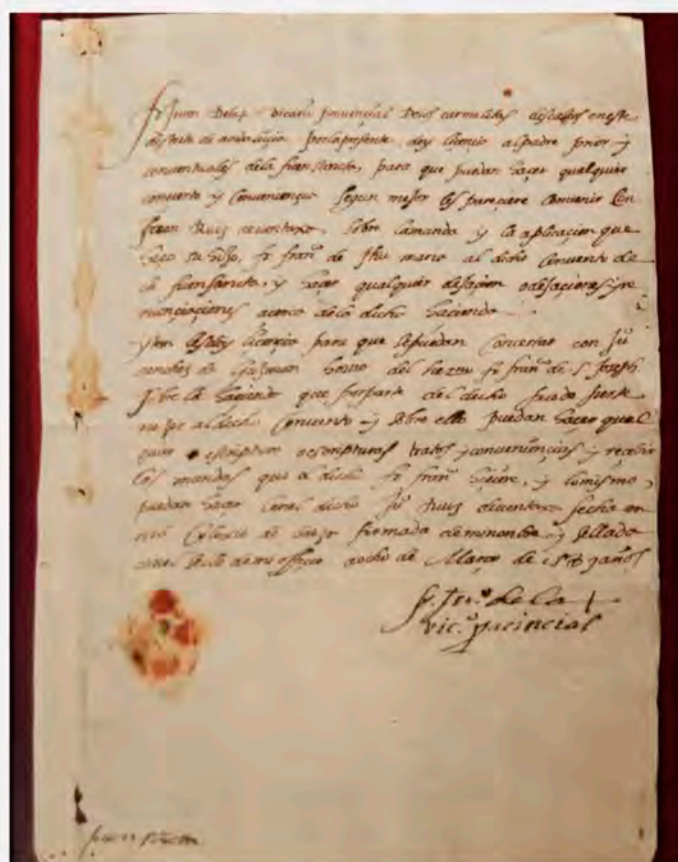 fr Juan de la + vicario provincial de los carmelitas descalços en este
distrito de andaluçia por la presente doy licencia al padre prior y
conventuales de la fuensancta, para que puedan haçer qualquier
concierto y conveniençia segun mejor les pareçiere convenir con
Juan Ruiz de ventaxa, sobre la manda y la aplicaçion que
haçe su hijo, fr franco de Jhs maria al dicho convento de
la fuensancta, y haçer qualquier dexaçion o dexaçiones y re
nunçiaçiones acerca de la dicha hacienda
yten les doy licencia para que se puedan concertar con Ju
de Guzman del fr franco de S. Joseph
sobre la hacienda que por parte del dicho
al dicho convento y sobre ello puedan haçer qual
quier escriptura o escripturas tratos y conveniençias y recebir
las mandas que el dicho fr franco hiçiere, y lo mismo
puedan haçer con el dicho Ju Ruiz de ventaxa fecha en
nro Colegio de firmada de mi nombre y sellada
con el sello de mi officio a ocho de Março de años
fr. Jn.º de la +
vic.º provincial